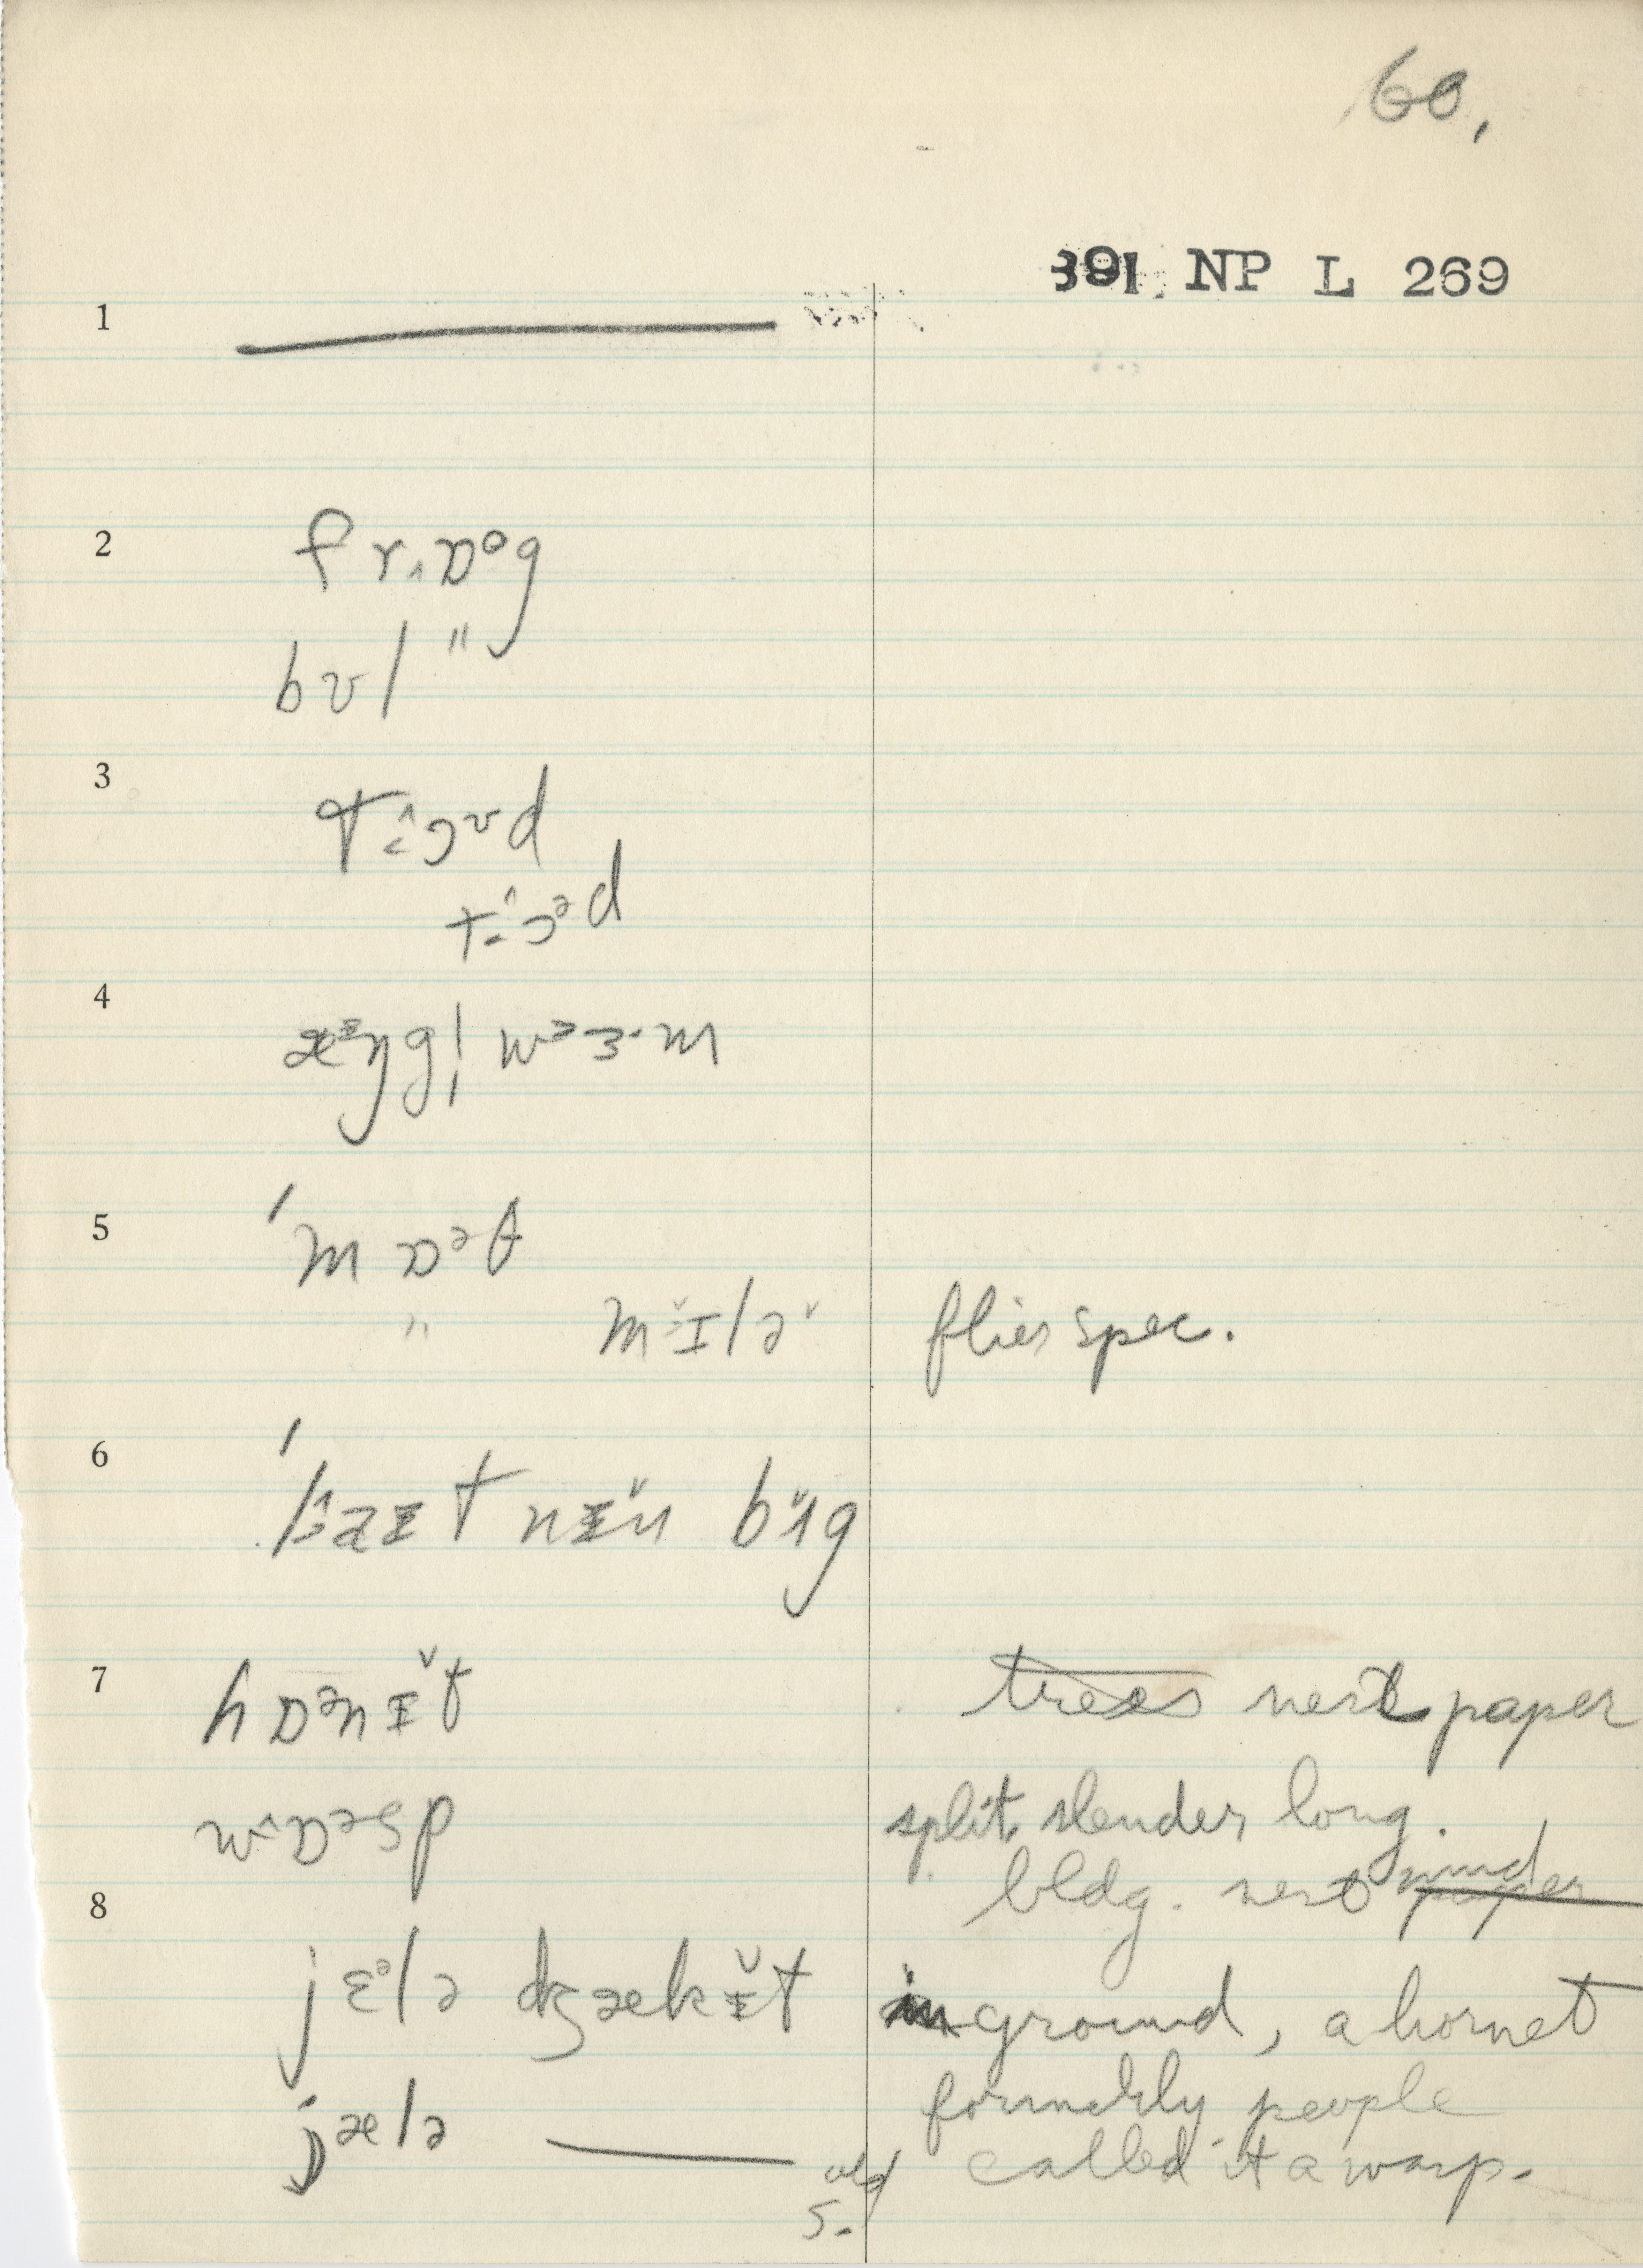 60,
391 NP L 269
1
2 fr˰ɒᵒg
bʊl "
3 tɔᶷd
tɔᵊd
4 æᶦŋg| wᵊɜ·m
5 'mɒᵊθ
" mɪlə flies spec.
6 'laɪtnɪn bʌg
7 hɒᵊnɪ̆t trees nest paper
wɒᵊsp split slender long.
bldg. nest mud paper
8 jɛᵊlə dʒækɪ̆t in ground, a hornet
formerly people
jælə — old s. called it a wasp.